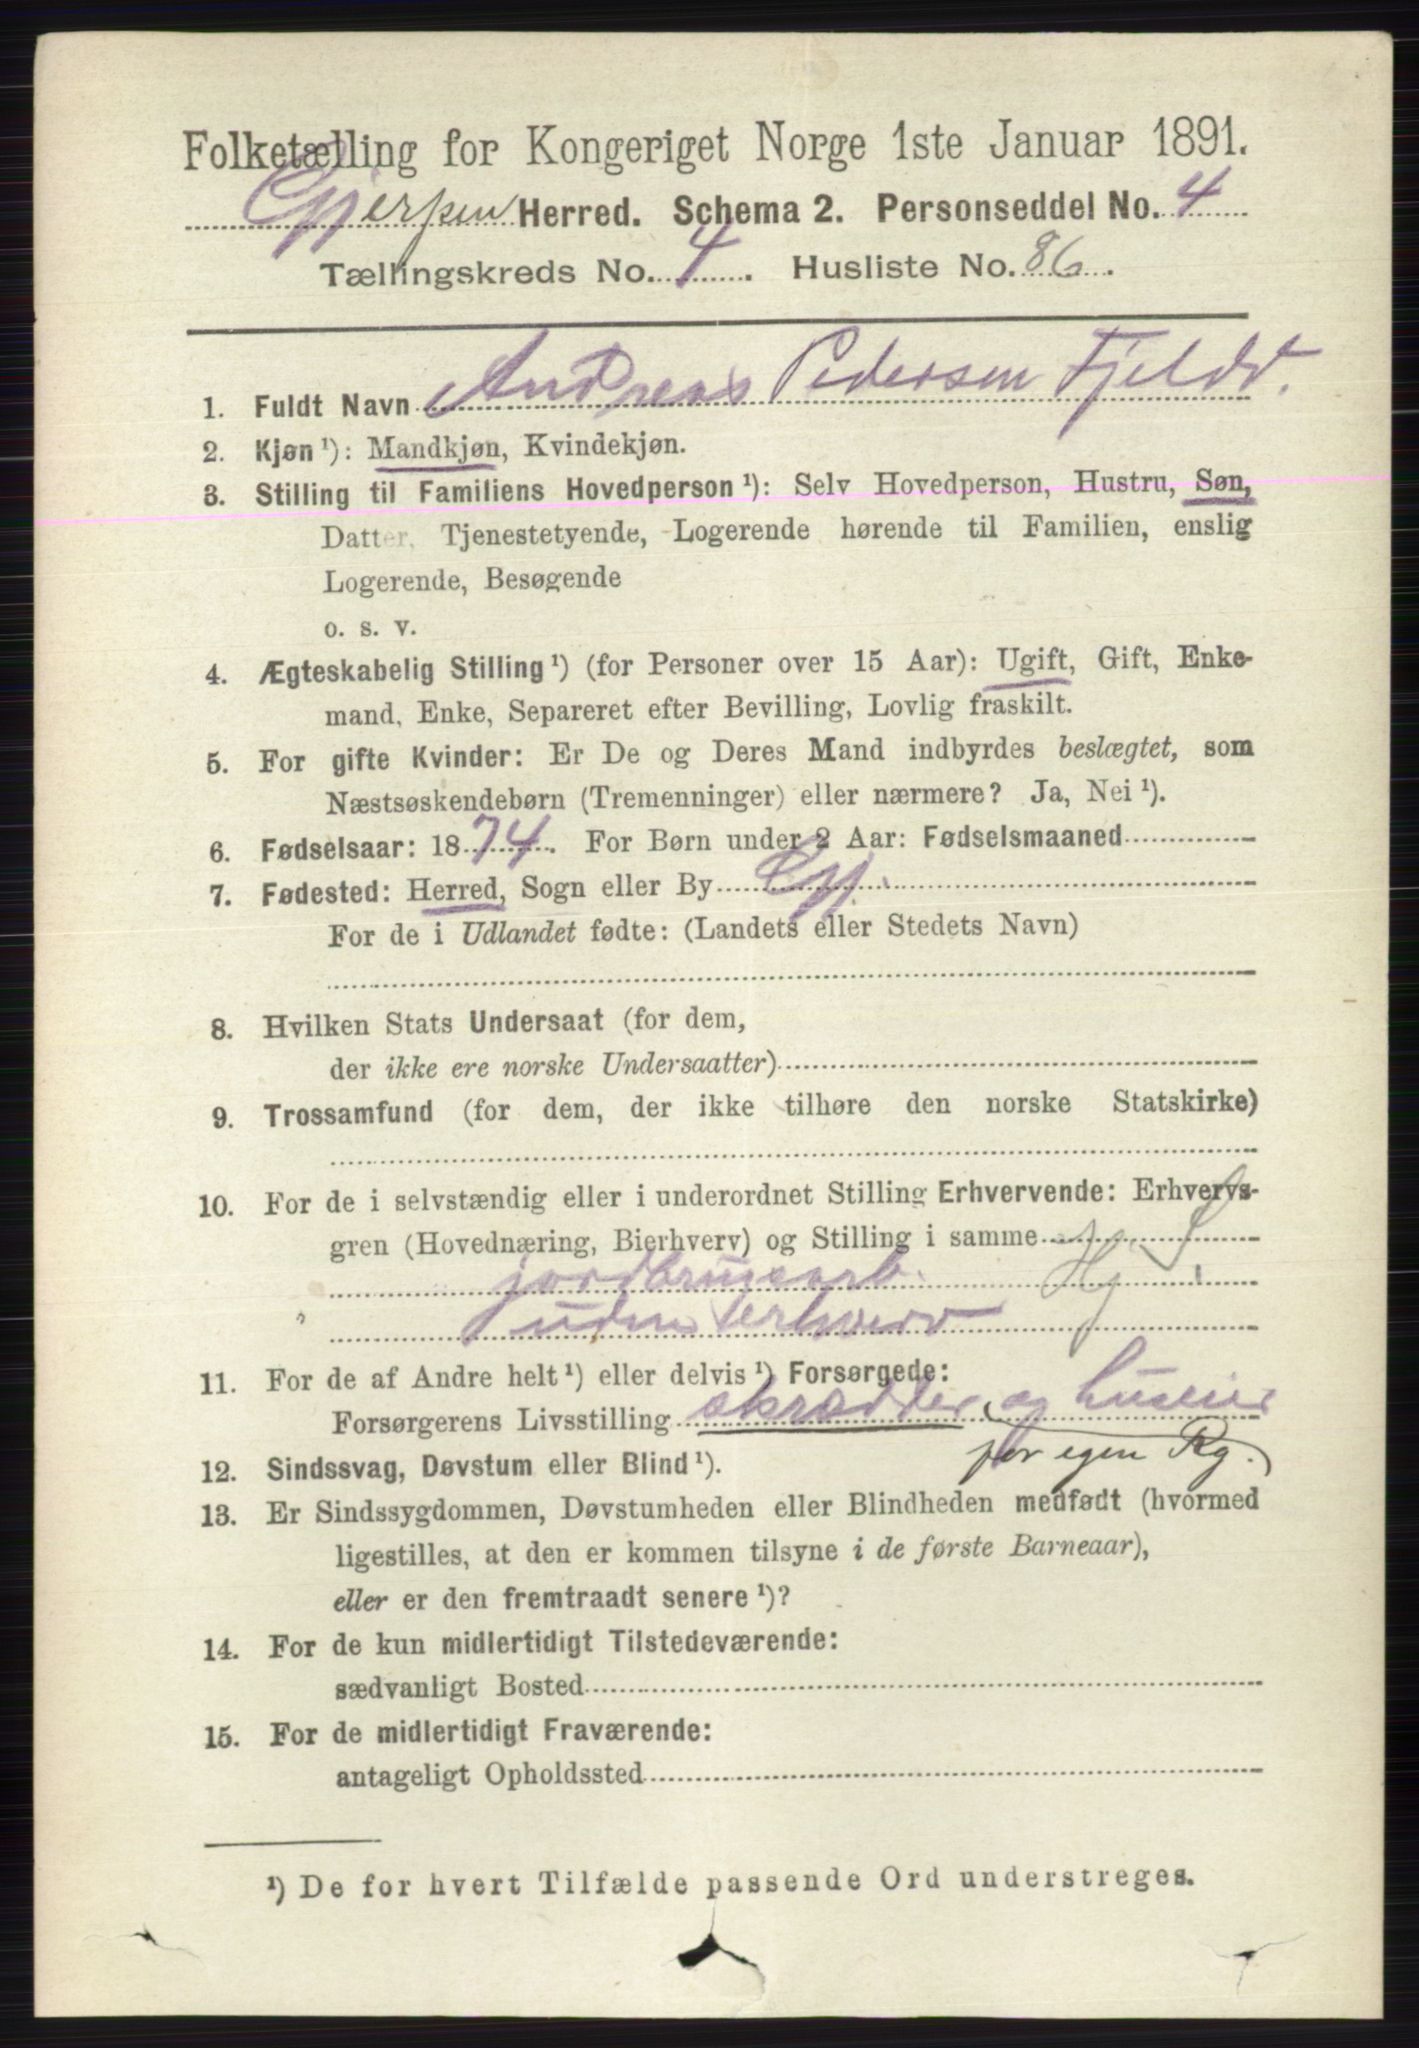 Folketælling for Kongeriget Norge 1ste Januar 1891.
Gjerpen Herred. Schema 2. Personseddel No. 4
Tællingskreds No. 4. Husliste No. 86.
1. Fuldt Navn Andreas Pedersen Fjeld
2. Kjøn ¹): Mandkjøn, Kvindekjøn.
3. Stilling til Familiens Hovedperson ¹): Selv Hovedperson, Hustru, Søn,
Datter, Tjenestetyende, Logerende hørende til Familien, enslig
Logerende, Besøgende
o. s. v.
4. Ægteskabelig Stilling ¹) (for Personer over 15 Aar): Ugift, Gift, Enke-
mand, Enke, Separeret efter Bevilling, Lovlig fraskilt.
5. For gifte Kvinder: Er De og Deres Mand indbyrdes beslægtet, som
Næstsøskendebørn (Tremenninger) eller nærmere? Ja, Nei ¹).
6. Fødselsaar: 1874. For Børn under 2 Aar: Fødselsmaaned
7. Fødested: Herred, Sogn eller By Gj.
For de i Udlandet fødte: (Landets eller Stedets Navn)
8. Hvilken Stats Undersaat (for dem,
der ikke ere norske Undersaatter)
9. Trossamfund (for dem, der ikke tilhøre den norske Statskirke)
10. For de i selvstændig eller i underordnet Stilling Erhvervende: Erhvervs-
gren (Hovednæring, Bierhverv) og Stilling i samme
jordbrugsarb. Hj
uden erhverv
11. For de af Andre helt ¹) eller delvis ¹) Forsørgede:
Forsørgerens Livsstilling skrædder og huseier
for egen Rg.
12. Sindssvag, Døvstum eller Blind ¹).
13. Er Sindssygdommen, Døvstumheden eller Blindheden medfødt (hvormed
ligestilles, at den er kommen tilsyne i de første Barneaar),
eller er den fremtraadt senere ¹)?
14. For de kun midlertidigt Tilstedeværende:
sædvanligt Bosted
15. For de midlertidigt Fraværende:
antageligt Opholdssted
¹) De for hvert Tilfælde passende Ord understreges.